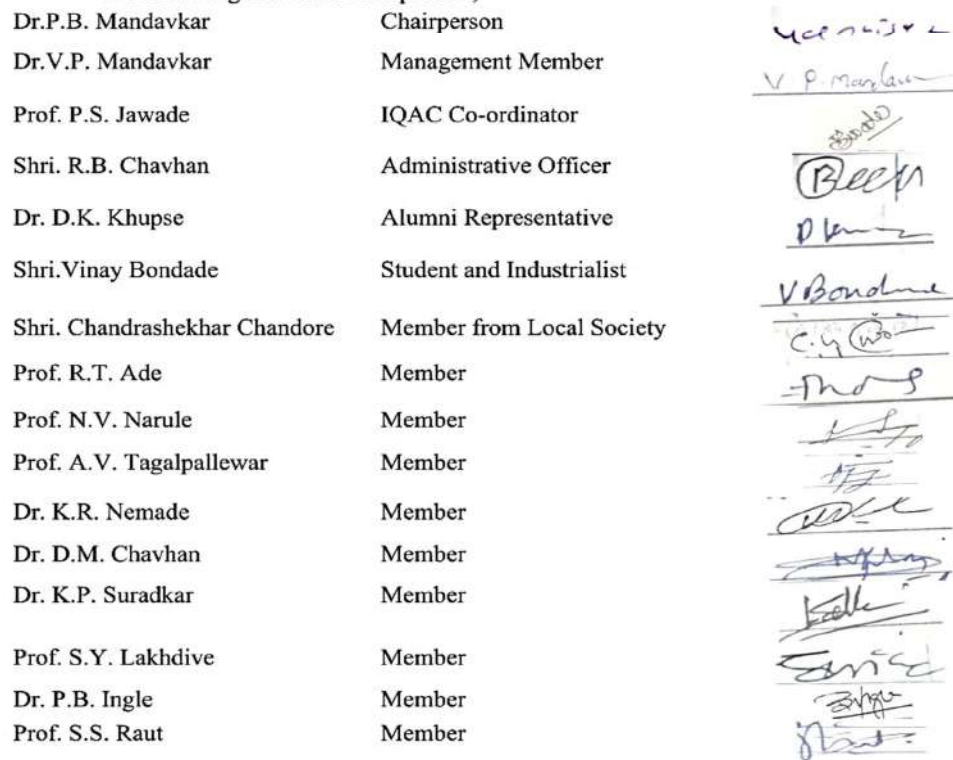 Dr.P.B. Mandavkar Chairperson
Dr.V.P. Mandavkar Management Member V P. Mandavkar
Prof. P.S. Jawade IQAC Co-ordinator
Shri. R.B. Chavhan Administrative Officer
Dr. D.K. Khupse Alumni Representative
Shri.Vinay Bondade Student and Industrialist V Bondade
Shri. Chandrashekhar Chandore Member from Local Society
Prof. R.T. Ade Member
Prof. N.V. Narule Member
Prof. A.V. Tagalpallewar Member
Dr. K.R. Nemade Member
Dr. D.M. Chavhan Member
Dr. K.P. Suradkar Member
Prof. S.Y. Lakhdive Member
Dr. P.B. Ingle Member
Prof. S.S. Raut Member